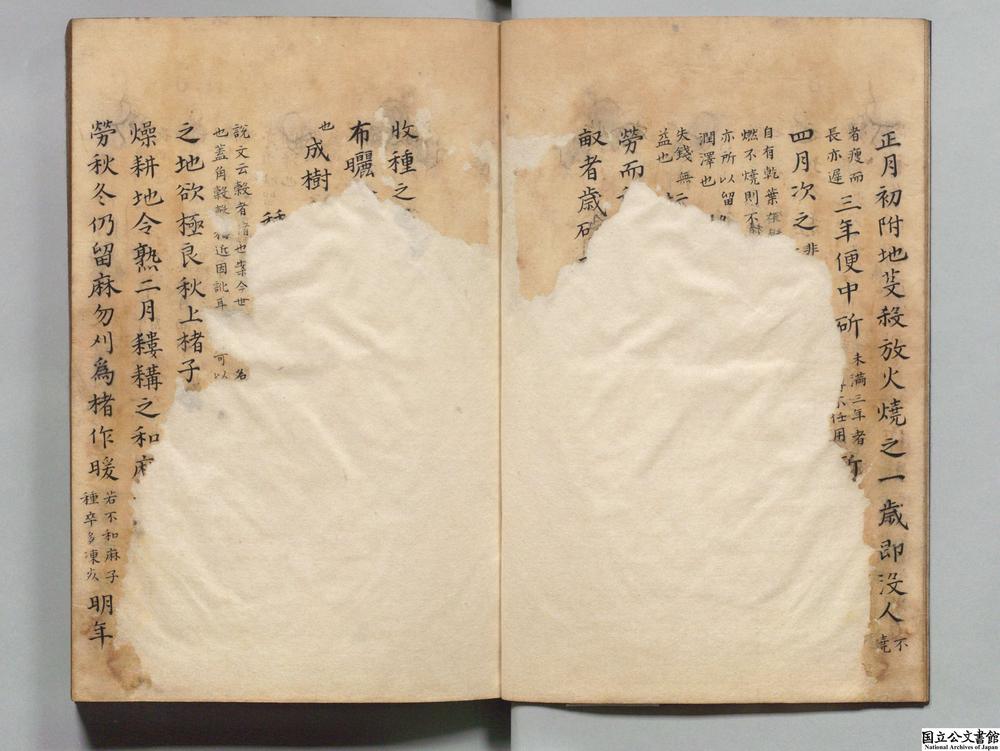 正月初附地芟殺放火燒之一歳即沒人不
燒
者瘦而
長亦遲
三年便中斫
未滿三年者
不任用
斫
四月次之
非
自有乾葉
燃不燒則不
亦所以留
潤澤也
失錢無
益也
勞而
畝者歳斫
收種之
布曬
也
成樹
種
說文云榖者楮也案今世
名
也蓋角榖
近因訛耳
可以
之地欲極良秋上楮子
燥耕地令熟二月耬耩之和麻
勞秋冬仍留麻勿刈為楮作暖
若不和麻子
種卒多凍死
明年
国立公文書館
National Archives of Japan